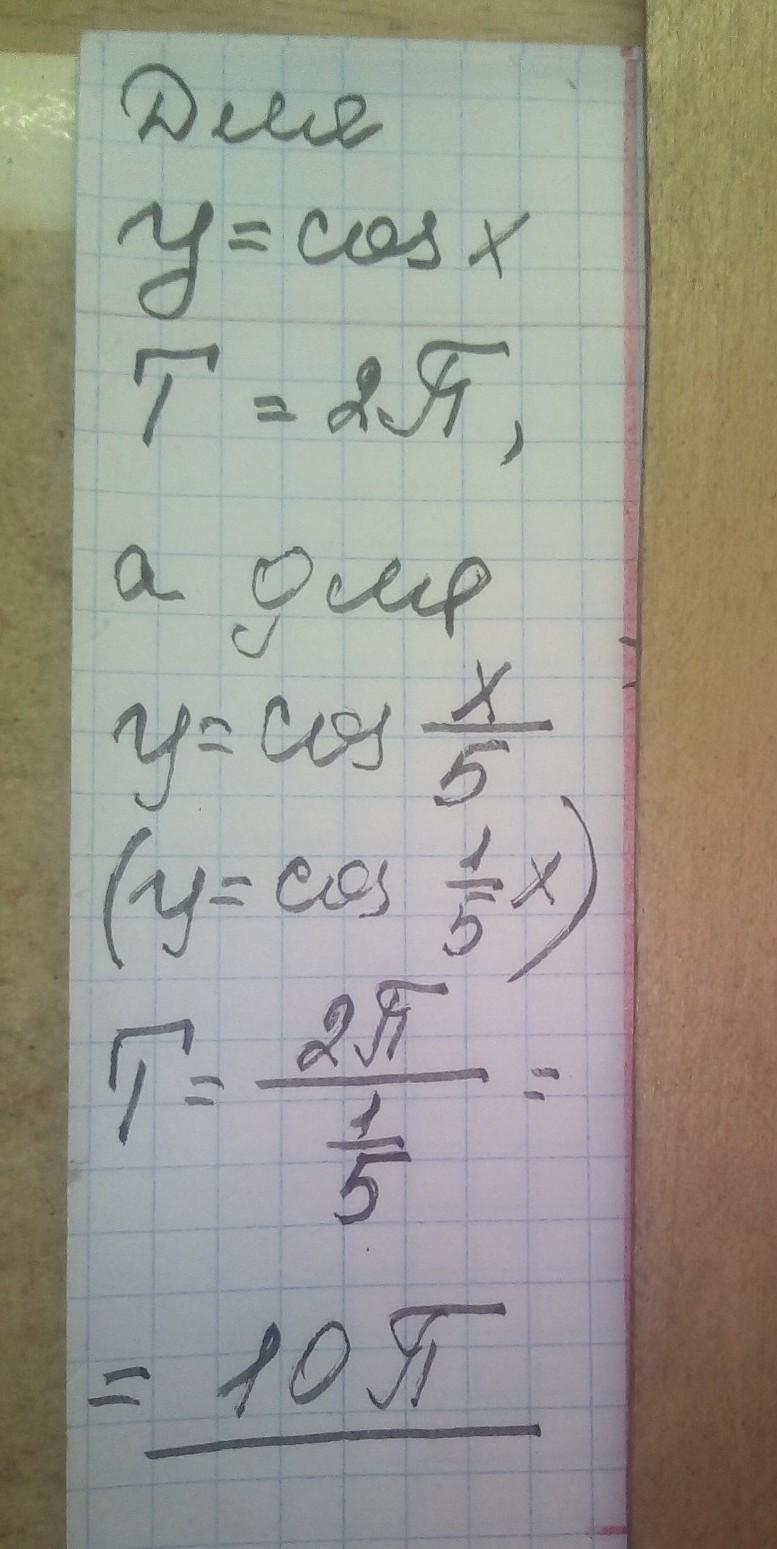 Для
y = cos x
T = 2π,
а для
y = cos x/5
(y = cos 1/5 x)
T = 2π / 1/5 =
= 10π